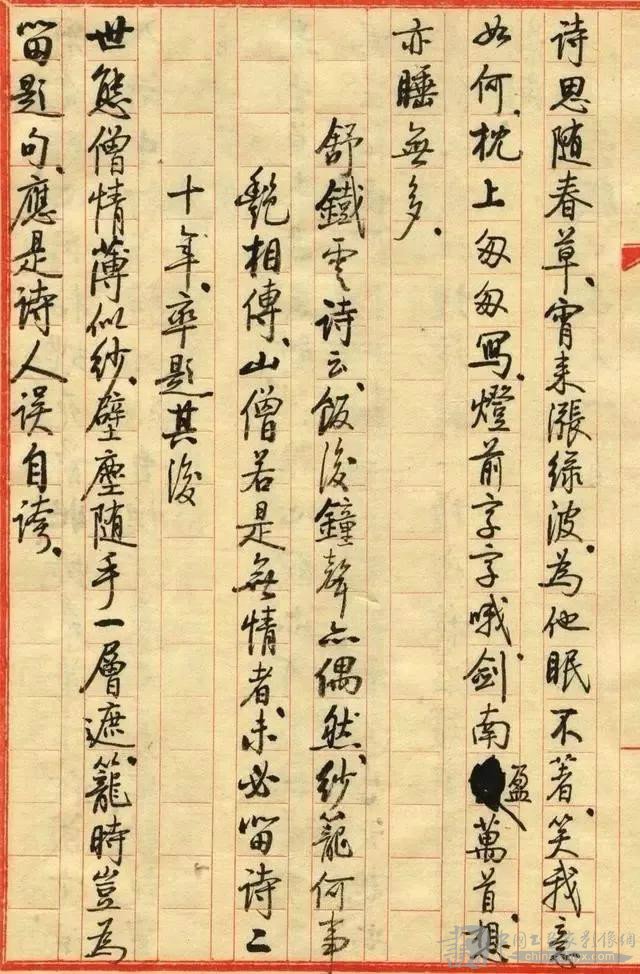 诗思随春草、宵来漲绿波、為他眠不著、笑我
如何、枕上匆匆寫、燈前字字哦、劍南盈萬首、想
亦睡無多、
舒鐵雲诗云、飯後鐘聲亦偶然、纱籠何事
艷相傳、山僧若是無情者、未必留诗二
十年、率题其後
世態僧情薄似纱、壁塵随手一層遮、籠時豈為
留题句、應是诗人误自誇、